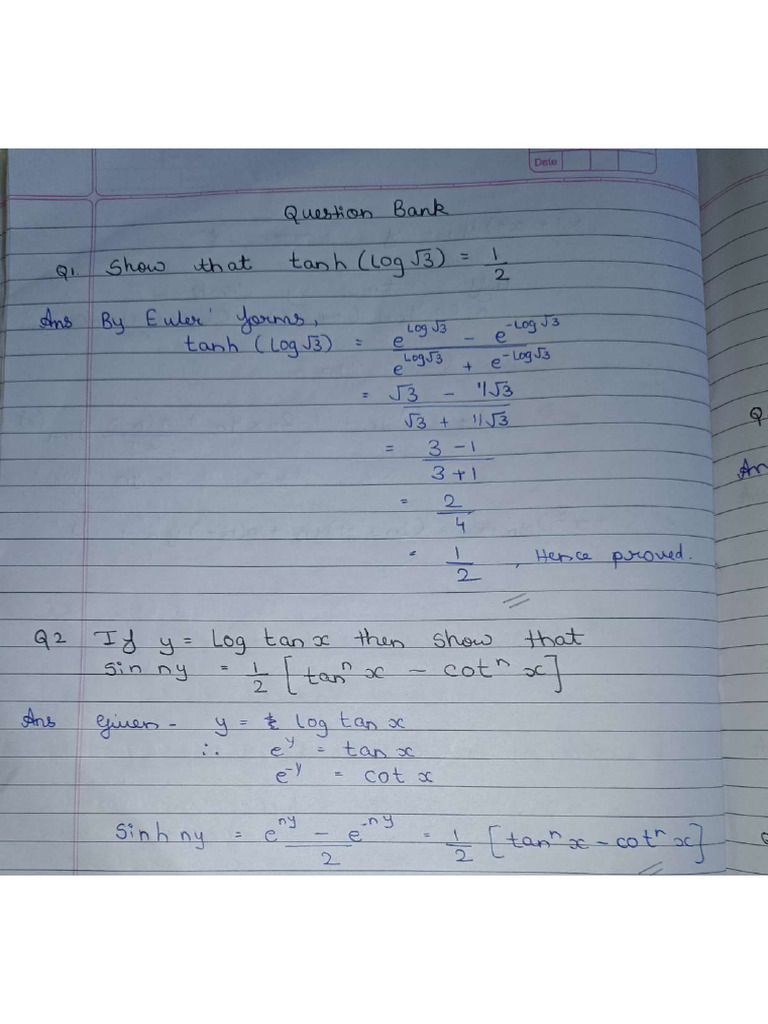 Date
Question Bank
Q1. Show that tanh (log √3) = 1/2
Ans By Euler' forms,
tanh (log √3) = e^{log √3} - e^{-log √3} / e^{log √3} + e^{-log √3}
= √3 - 1/√3 / √3 + 1/√3
= 3 - 1 / 3 + 1
= 2/4
= 1/2 , Hence proved.
Q2 If y = log tan x then show that
sin ny = 1/2 [tan^n x - cot^n x]
Ans Given - y = log tan x
∴ e^y = tan x
e^{-y} = cot x
Sinh ny = e^{ny} - e^{-ny} / 2 = 1/2 [tan^n x - cot^n x]
Q
An